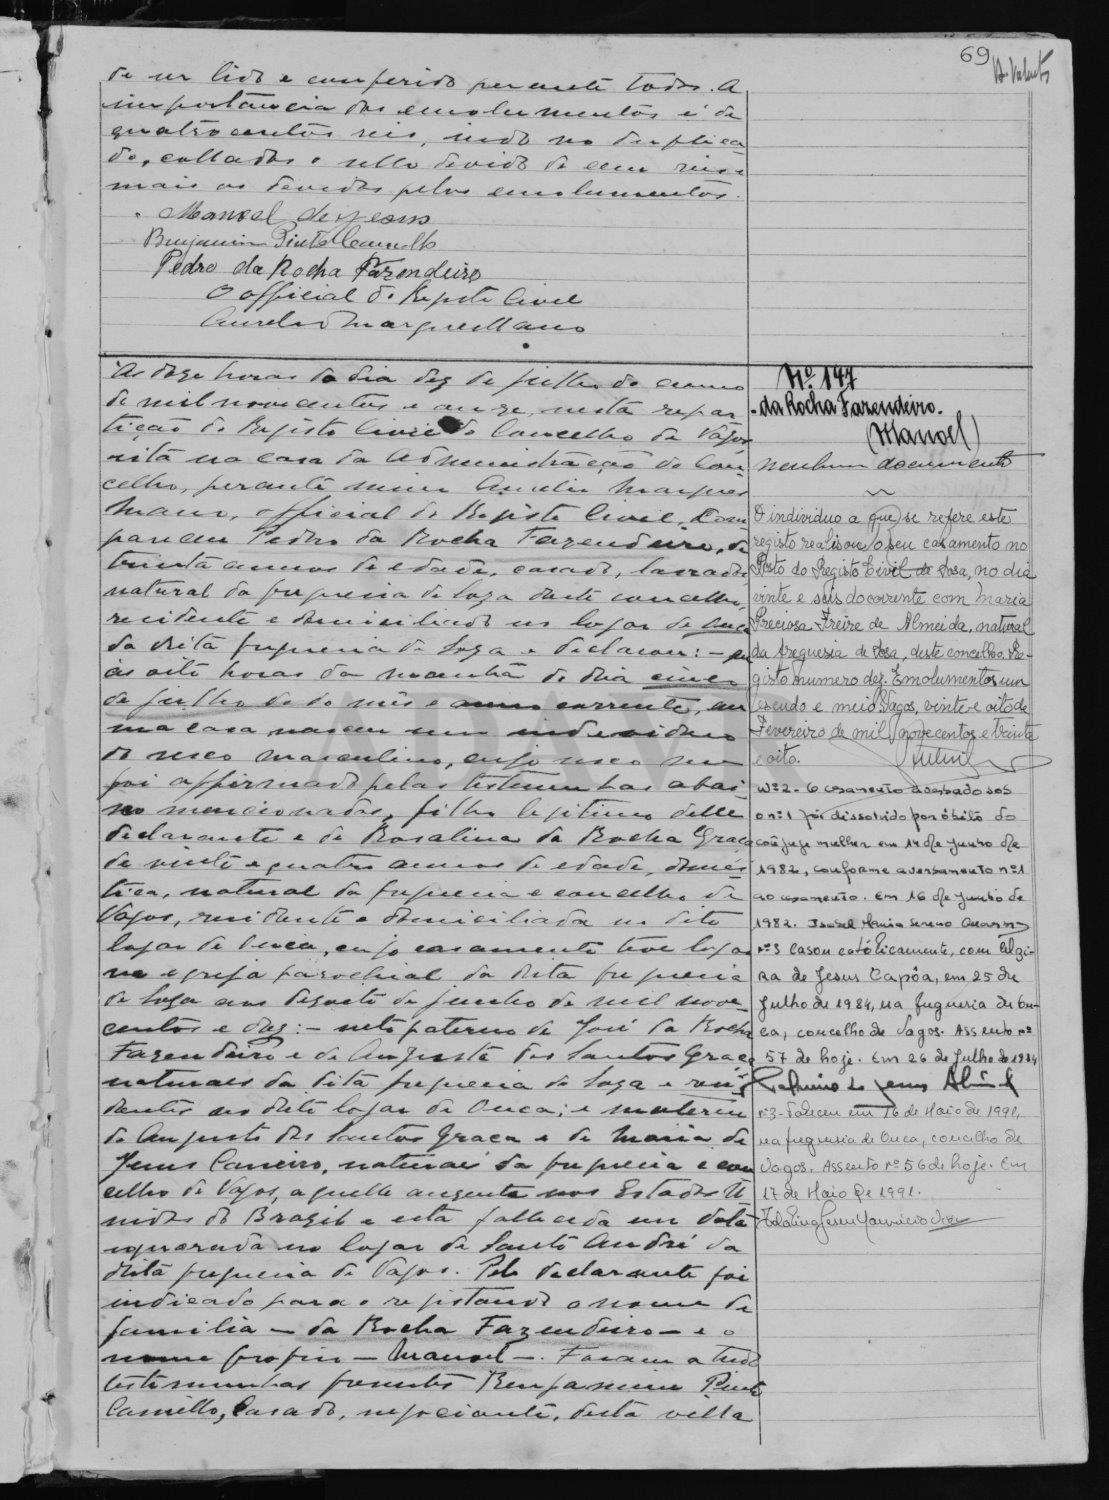 69
de ser lido e conferido perante todos. A
importancia dos emolumentos é de
quatrocentos reis, indo no duplica-
do, collados o sello devido de cem reis e
mais os devidos pelos emolumentos.
Manoel de Jesus
Benjamim Pinto Camello
Pedro da Rocha Fazendeiro
O official do Registo Civil
Aurelio Marques Mano
As doze horas do dia dez de julho do anno
de mil novecentos e onze, nesta repar-
tição do Registo Civil do Concelho de Vagos
sita na casa da Administração do Con-
celho, perante mim Aurelio Marques
Mano, official do Registo Civil, com-
pareceu Pedro da Rocha Fazendeiro, de
trinta annos de edade, casado, lavrador
natural da freguesia de Soza deste concelho,
residente e domiciliado no lugar de Ouca
da dita freguesia de Soza e declarou: - que
ás oito horas da manhã do dia cinco
de julho do mês e anno corrente, em
sua casa nasceu um individuo
do sexo masculino, cujo sexo me
foi affirmado pelas testemunhas abai-
xo mencionadas, filho legitimo delle
declarante e de Rosalina da Rocha Graça
de vinte e quatro annos de edade, domés-
tica, natural da freguesia e concelho de
Vagos, residente e domiciliada no dito
lugar de Ouca, cujo casamento teve logar
na egreja parochial da dita freguesia
de Soza aos dezoito de junho de mil nove-
centos e dez: - neto paterno de José da Rocha
Fazendeiro e de Augusta dos Santos Graça
naturaes da dita freguesia de Soza e resi-
dentes no dito lugar de Ouca; e materno
de Augusto dos Santos Graça e de Maria de
Jesus Caneiro, naturaes da freguesia e con-
celho de Vagos, aquelle ausente nos Estados U-
nidos do Brazil e esta fallecida em data
ignorada no lugar de Santo André da
dita freguesia de Vagos. Pelo declarante foi
indicado para o registando o nome de
familia - da Rocha Fazendeiro - e o
nome proprio - Manoel -. Foram a tudo
testemunhas presentes Benjamim Pinto
Camello, casado, negociante, desta villa
Nº 147
da Rocha Fazendeiro.
(Manoel)
nenhum documento
O individuo a que se refere este
registo realisou o seu casamento no
Posto do Registo Civil de Sosa, no dia
vinte e seis do corrente com Maria
Preciosa Freire de Almeida, natural
da freguesia de Sosa, deste concelho. Re-
gisto numero dez. Emolumentos um
escudo e meio. Vagos, vinte e oito de
Fevereiro de mil novecentos e trinta
e oito.
Nº 2 - O casamento averbado sob
o nº 1 foi dissolvido por óbito do
conjuge mulher em 14 de Junho de
1982, conforme averbamento nº 1
ao casamento. Em 16 de Junho de
1982. Isabel Maria Sereno
nº 3 Casou catòlicamente, com Alzi-
ra de Jesus Capôa, em 25 de
Julho de 1984, na freguesia de Ou-
ca, concelho de Vagos. Assento nº
57 de hoje. Em 26 de Julho de 1984
nº 3 - Faleceu em 16 de Maio de 1991,
na freguesia de Ouca, concelho de
Vagos. Assento nº 56 de hoje. Em
17 de Maio de 1991.